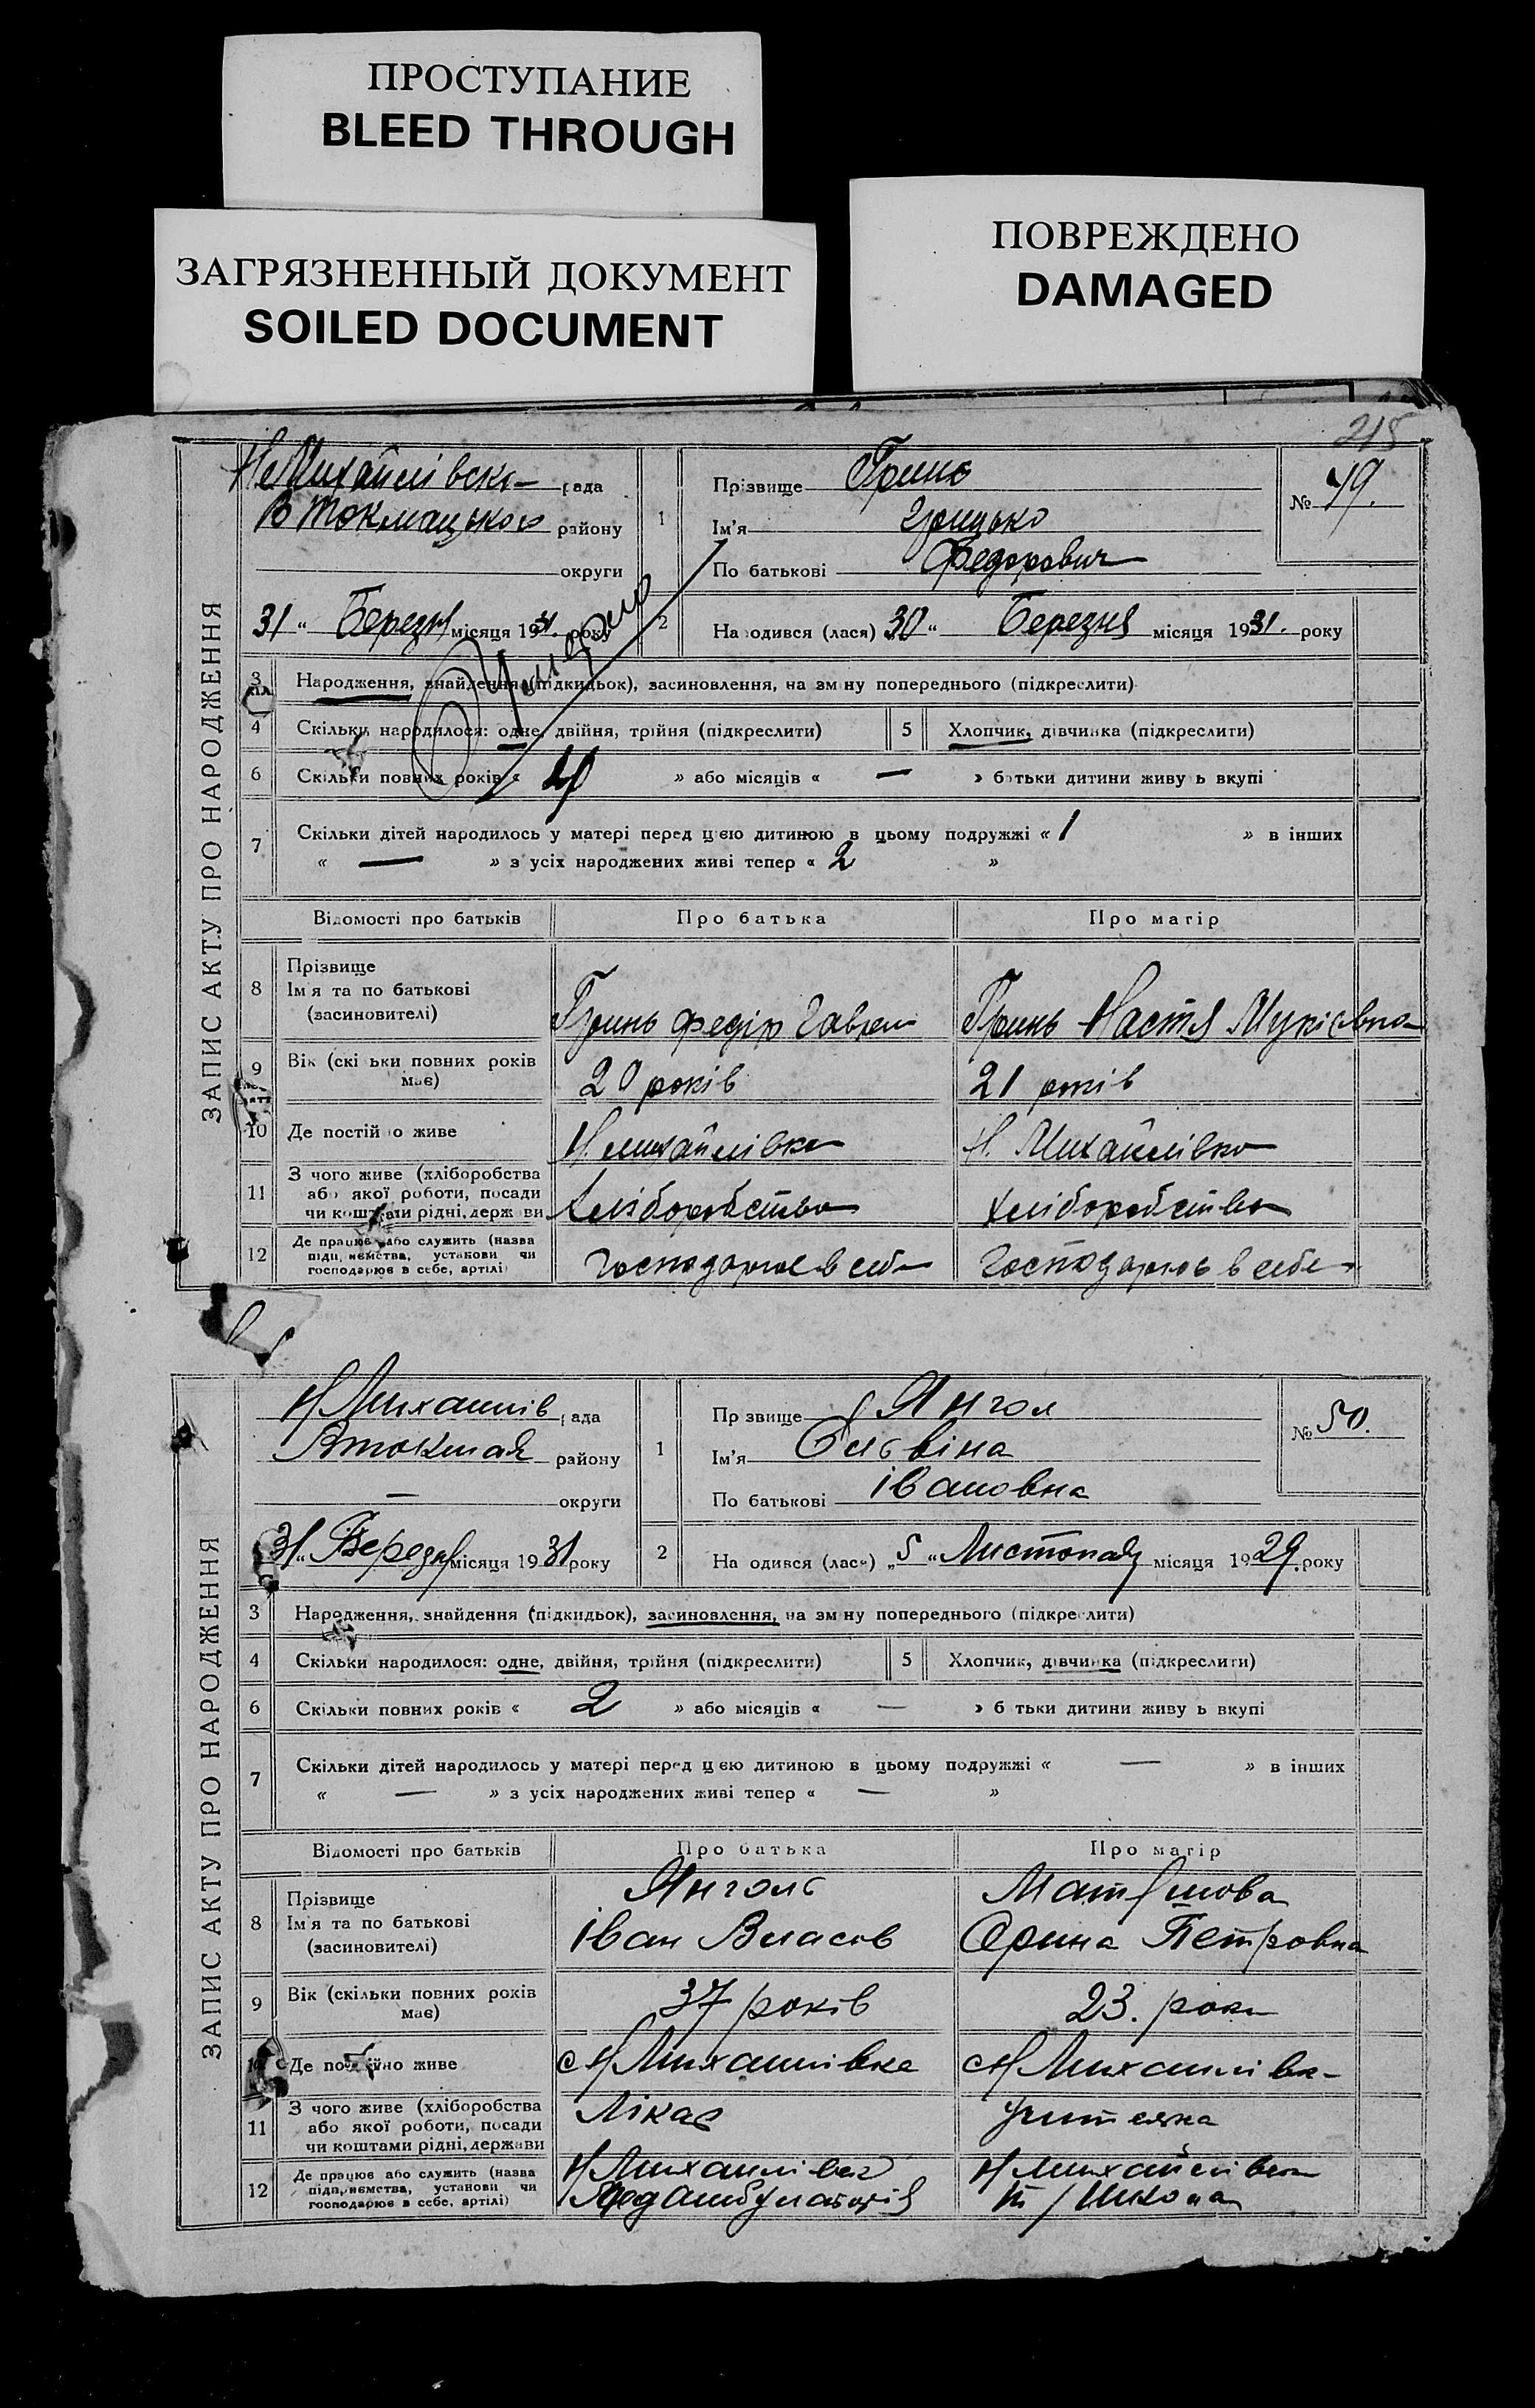 ПРОСТУПАНИЕ
BLEED THROUGH
ЗАГРЯЗНЕННЫЙ ДОКУМЕНТ
SOILED DOCUMENT
ПОВРЕЖДЕНО
DAMAGED
215
ЗАПИС АКТУ ПРО НАРОДЖЕННЯ
Н Михайлівска рада
В Токмацького району
округи
31 " Березня місяця 1931 року
1
Прізвище Гринь
Ім'я Грицько
По батькові Федорович
№ 49.
2
Народився (лася) 30 " Березня місяця 1931. року
3 Народження, знайдення (підкидьок), засиновлення, на зміну попереднього (підкреслити)
4 Скільки народилося: одне, двійня, трійня (підкреслити)
5 Хлопчик, дівчинка (підкреслити)
6 Скільки повних років « » або місяців « — » батьки дитини живуть вкупі
7 Скільки дітей народилось у матері перед цією дитиною в цьому подружжі « 1 » в інших
« — » з усіх народжених живі тепер « 2 »
Відомості про батьків Про батька Про матір
8 Прізвище
Ім'я та по батькові
(засновителі)
Гринь Федір Гаврил
Гринь Настя
9 Вік (скільки повних років
має)
20 років
21 років
10 Де постійно живе
Н Михайлівка
Н. Михайлівка
11 З чого живе (хліборобства
або якої роботи, посади
чи коштами рідні, держави
хліборобства
хліборобства
12 Де працює або служить (назва
підприємства, установи чи
господарює в себе, артілі)
Господарює в себе
Господарює в себе
ЗАПИС АКТУ ПРО НАРОДЖЕННЯ
Н Михайлів рада
В токмак району
— округи
31 " Березня місяця 1931 року
1
Прізвище Янгол
Ім'я
По батькові Івановна
№ 50.
2
Народився (лася) " 5 " Листопаду місяця 1929. року
3 Народження, знайдення (підкидьок), засиновлення, на зміну попереднього (підкреслити)
4 Скільки народилося: одне, двійня, трійня (підкреслити)
5 Хлопчик, дівчинка (підкреслити)
6 Скільки повних років « 2 » або місяців « — » батьки дитини живуть вкупі
7 Скільки дітей народилось у матері перед цією дитиною в цьому подружжі « — » в інших
« — » з усіх народжених живі тепер « — »
Відомості про батьків Про батька Про матір
8 Прізвище
Ім'я та по батькові
(засиновителі)
Янголь
Іван Власов
Орина Петровна
9 Вік (скільки повних років
має)
37 років
23. роки
10 Де постійно живе
с Н Михайлівка
с Н Михайлівка
11 З чого живе (хліборобства
або якої роботи, посади
чи коштами рідні, держави
Лікар
Учителька
12 Де працює або служить (назва
підприємства, установи чи
господарює в себе, артілі)
Н Михайлівка
Медамбулаторія
Н Михайлівка
школа